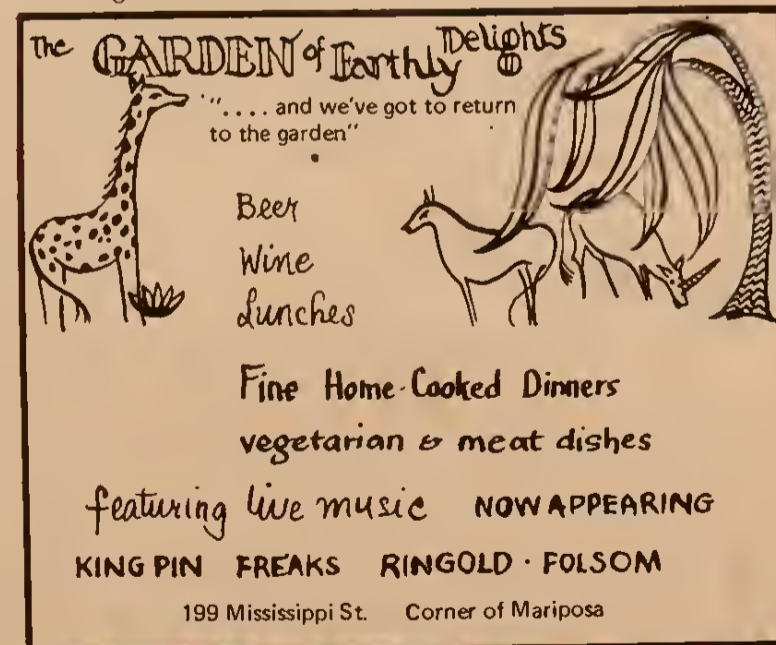 The GARDEN of Earthly Delights
".... and we've got to return
to the garden"
Beer
Wine
Lunches
Fine Home-Cooked Dinners
vegetarian & meat dishes
featuring live music NOW APPEARING
KING PIN FREAKS RINGOLD · FOLSOM
199 Mississippi St. Corner of Mariposa